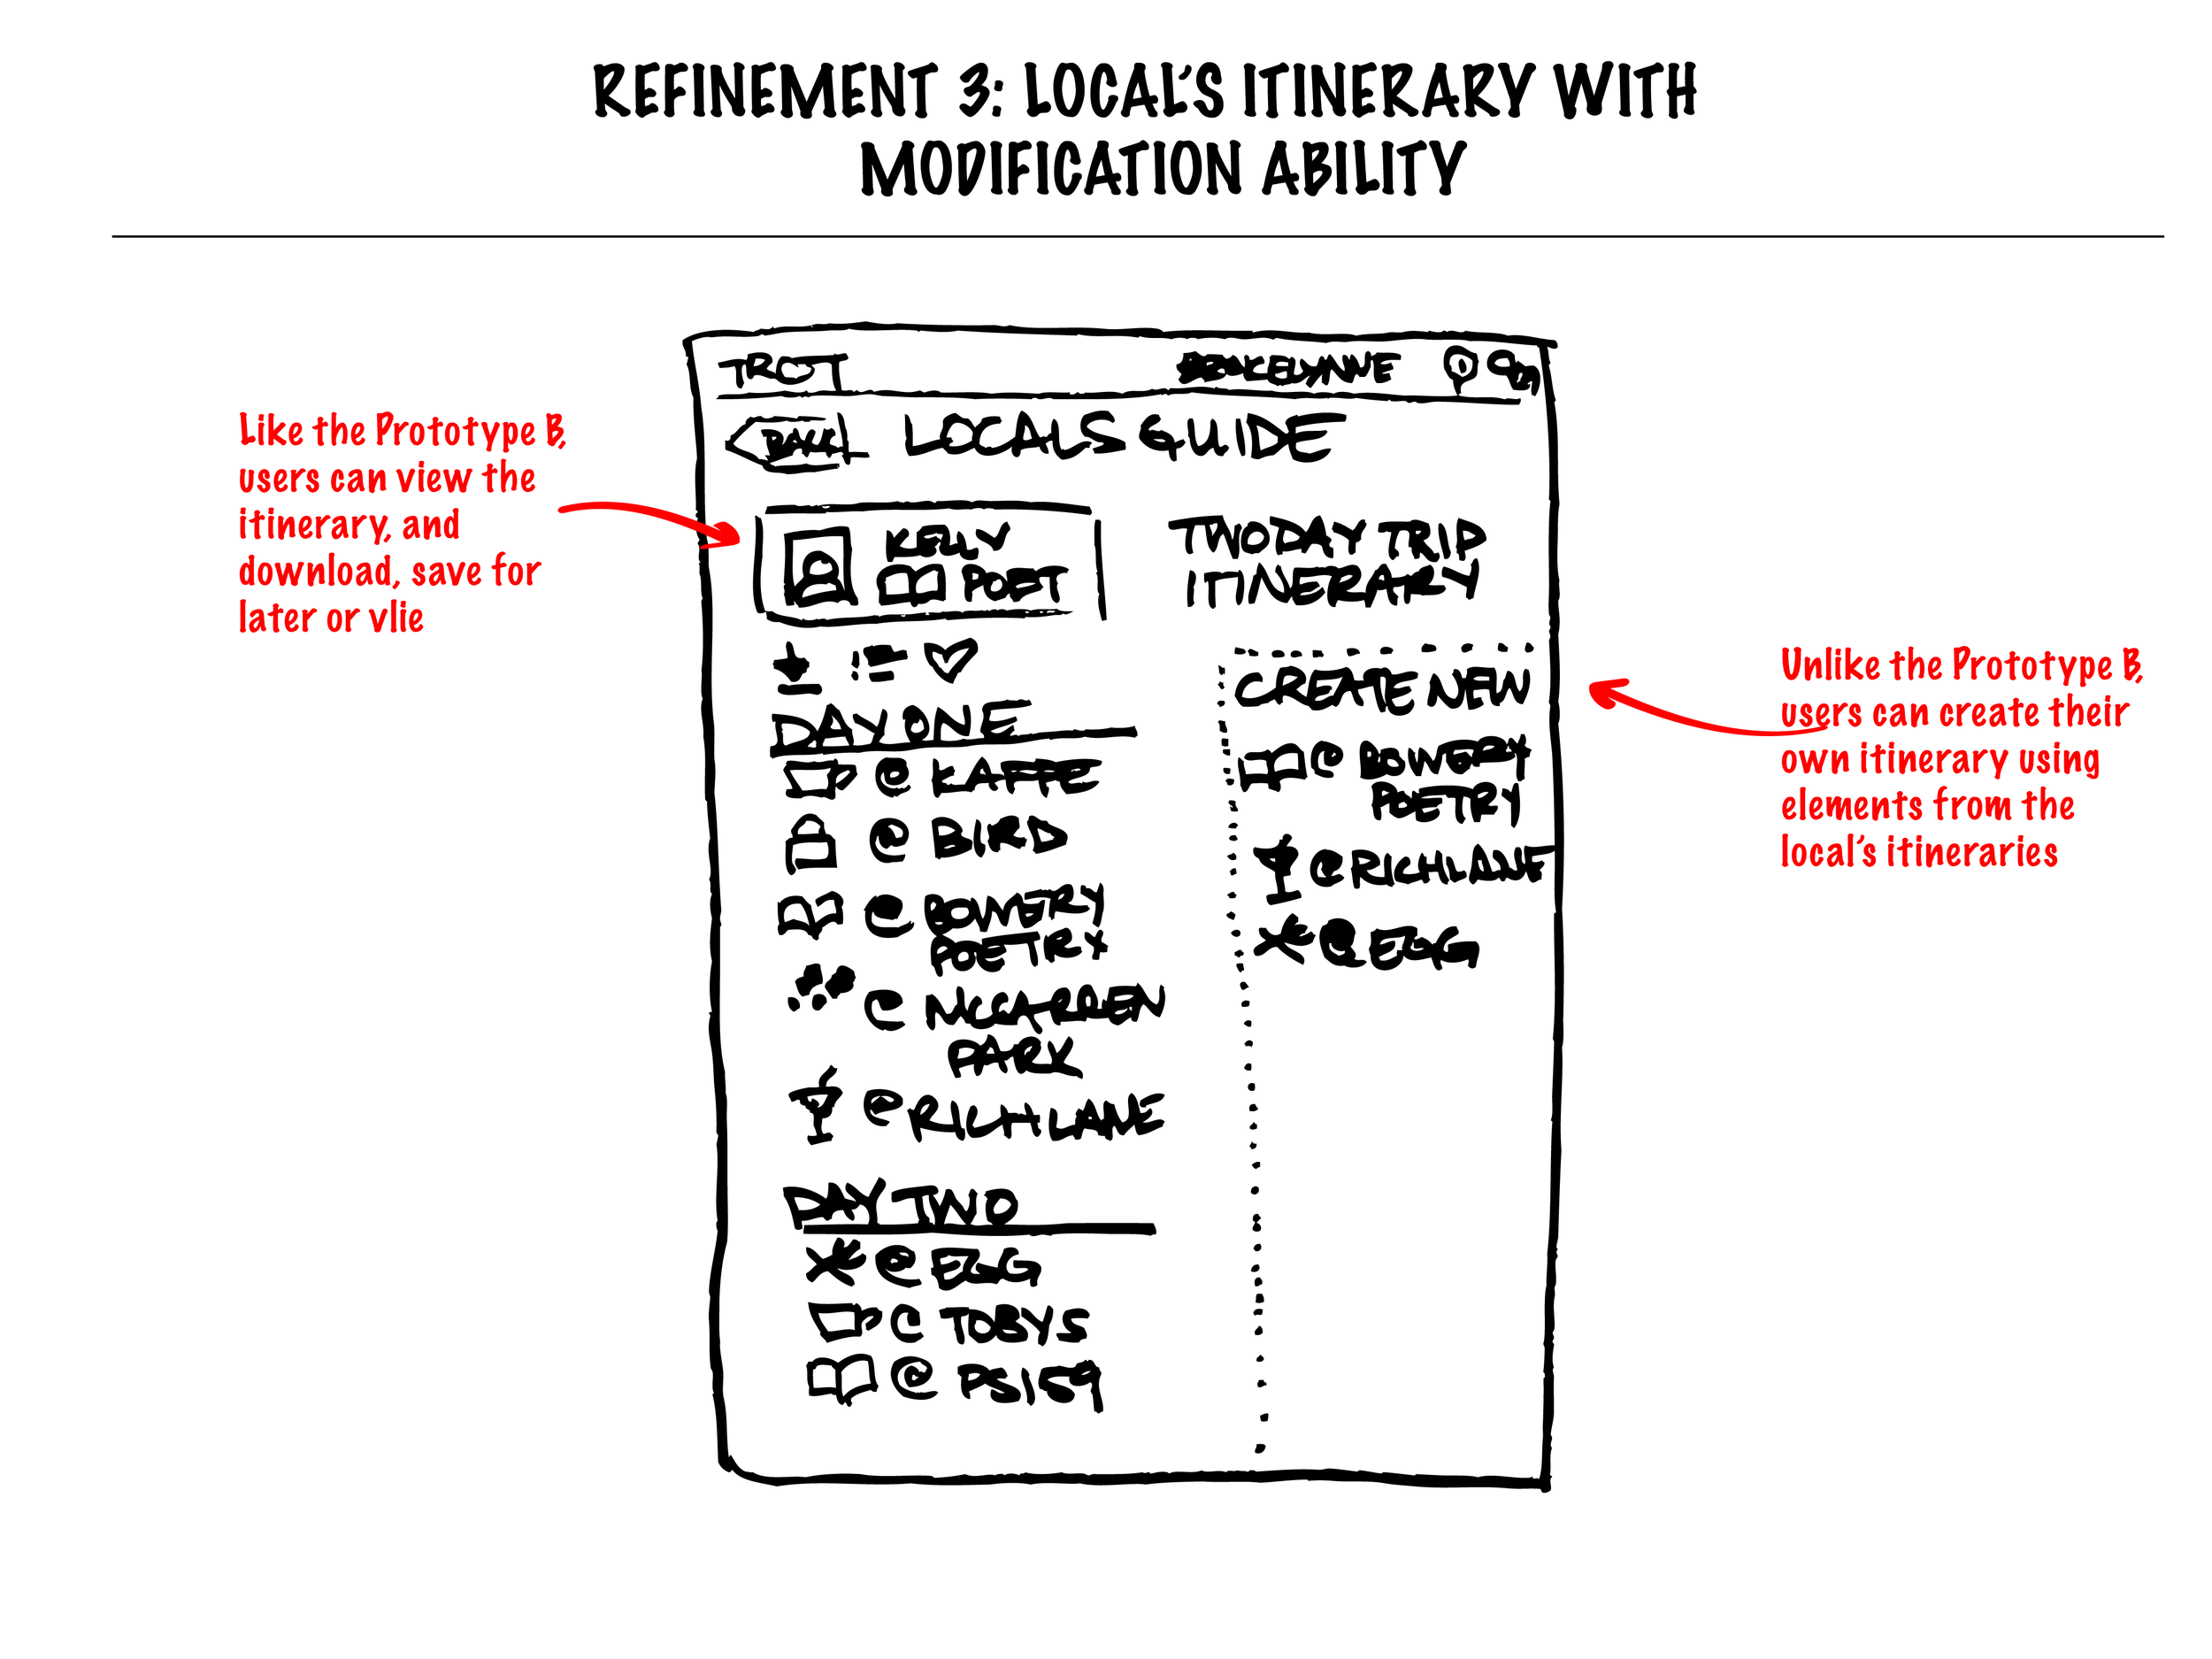 REFINEMENT 3: LOCAL'S ITINERARY WITH
MODIFICATION ABILITY
Like the Prototype B,
users can view the
itinerary, and
download, save for
later or vlie
TROT
BACK
LOCALS GUIDE
KELLY
POET
TWO DAY TRIP
ITINERARY
DAY ONE
@ KAFFE
@ BIRD
@ BOWERY
POETRY
@ MCCARREN
PARK
@ RICHLANE
DAY TWO
@ EGG
@ TOBYS
@ PS159
CREATE NEW
@ BOWERY
POETRY
@ RICHLANE
@ EGG
Unlike the Prototype B,
users can create their
own itinerary using
elements from the
local's itineraries